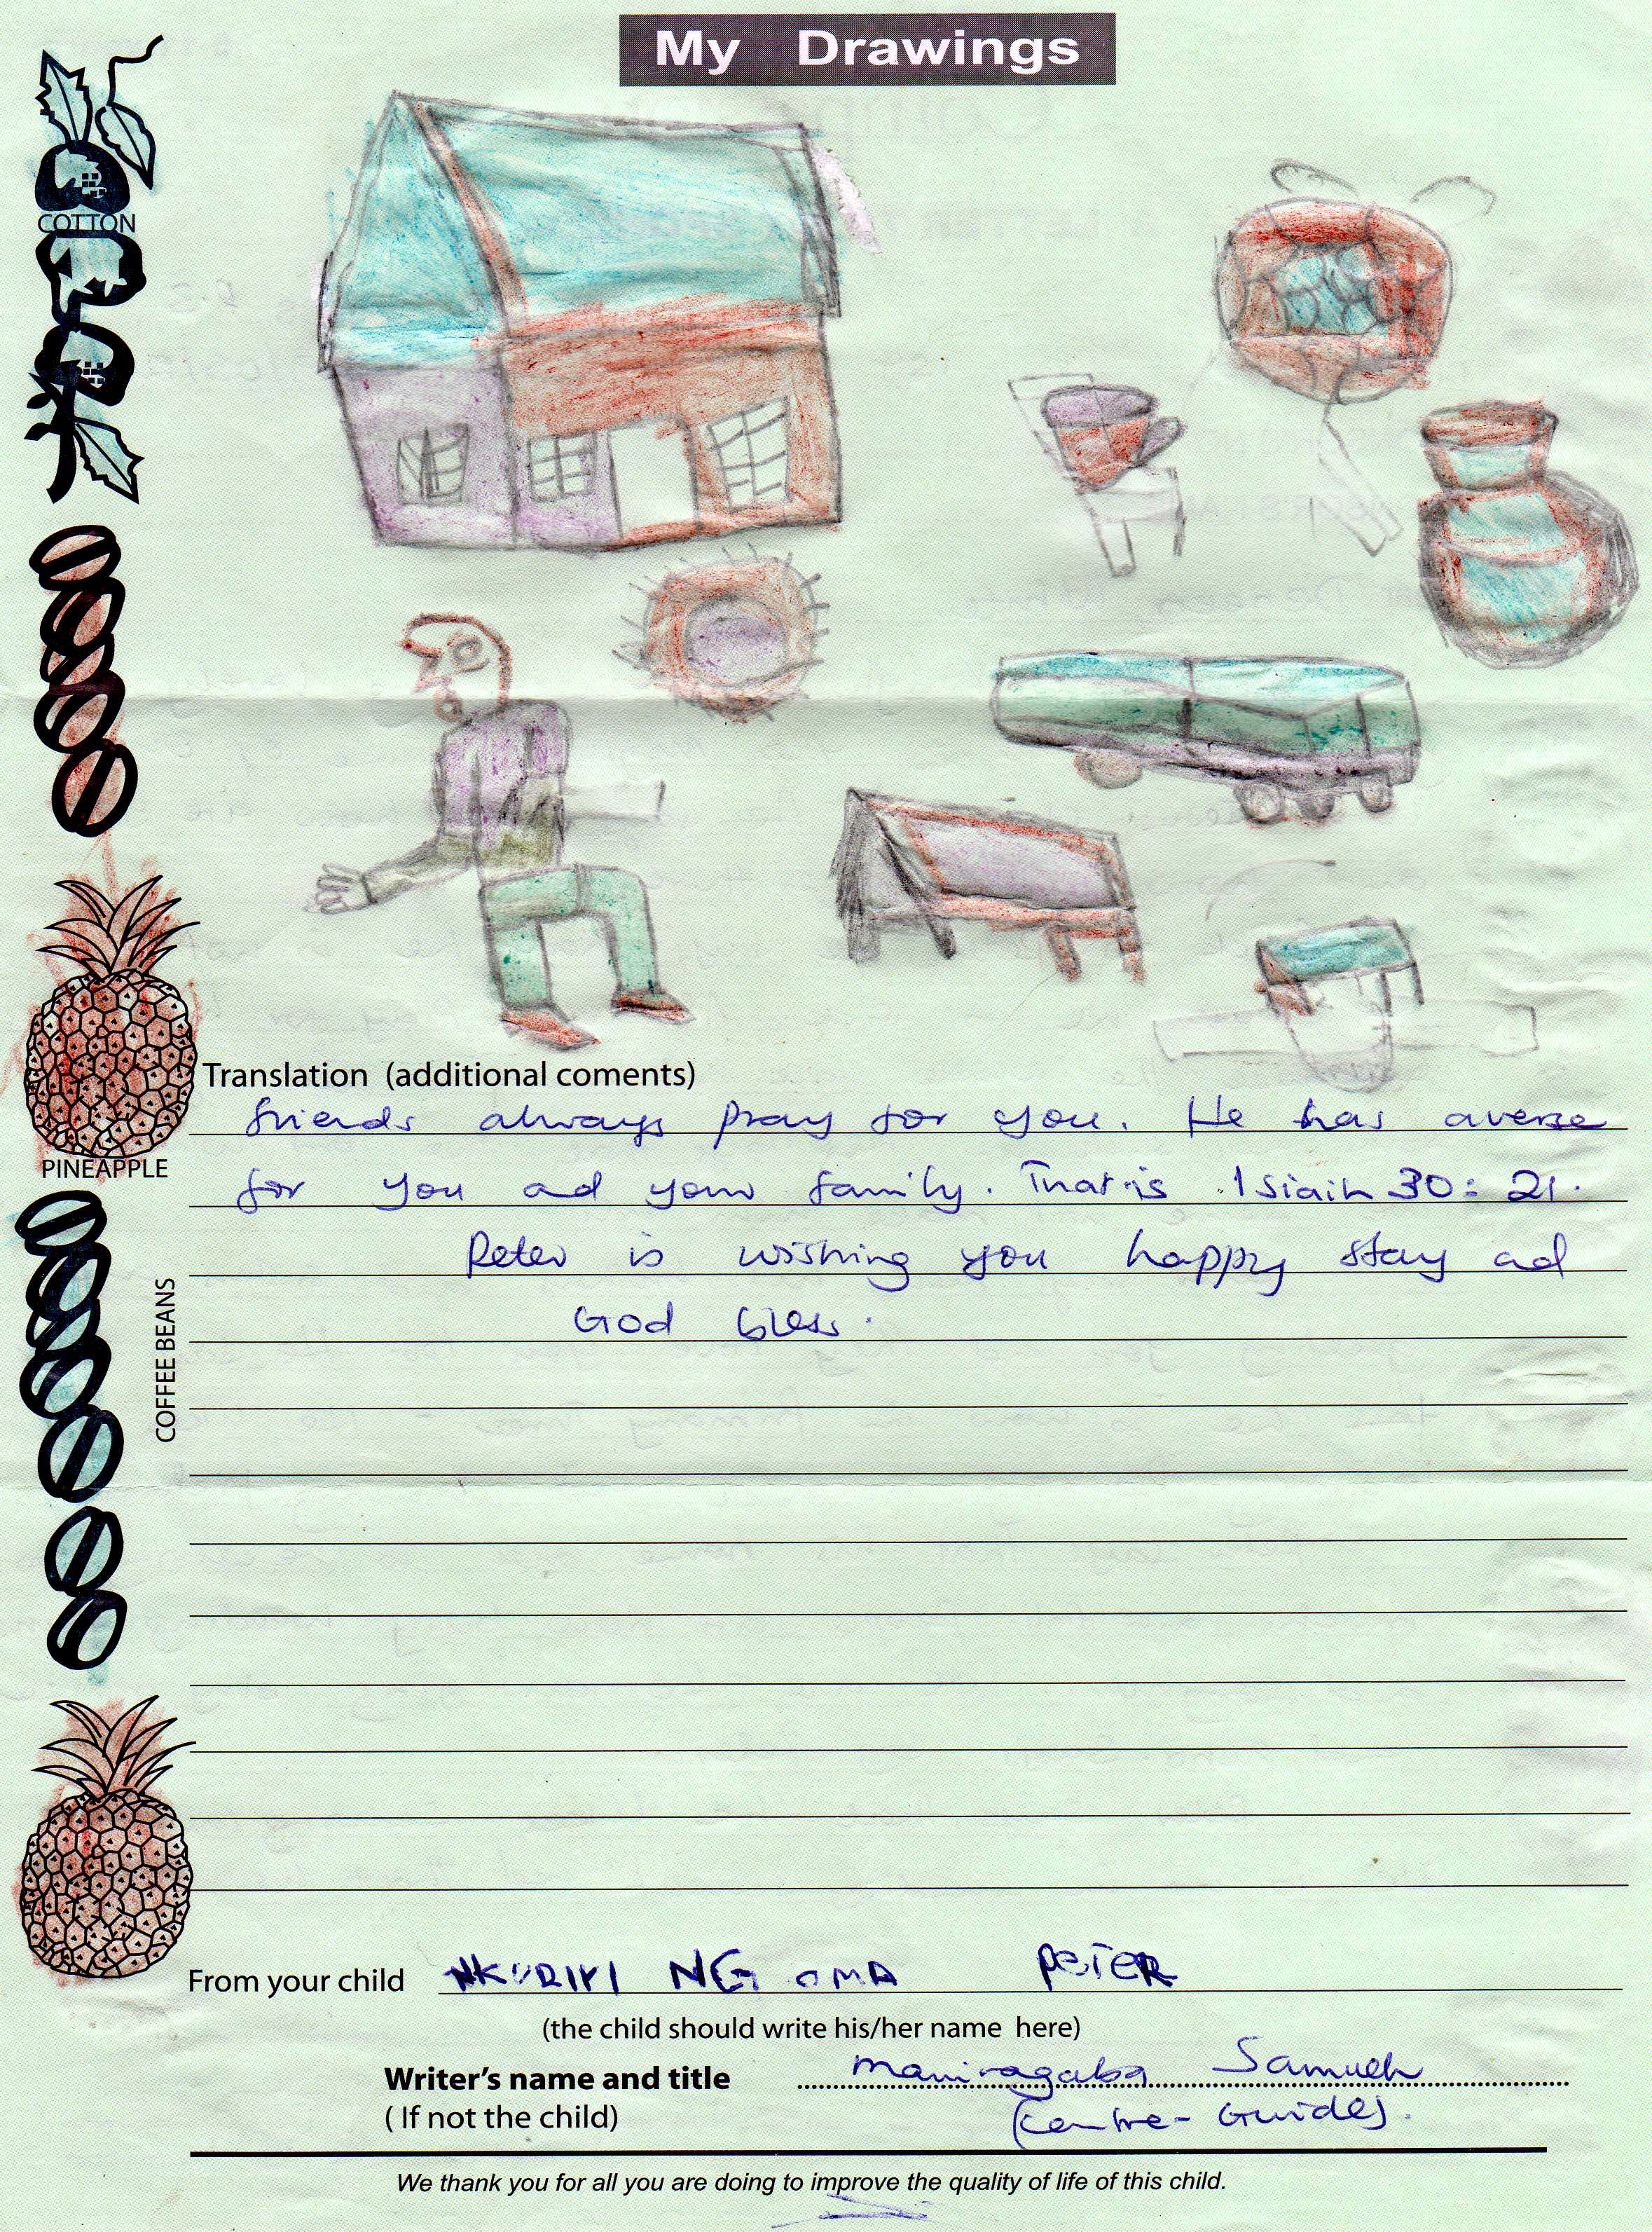 My Drawings
COTTON
Translation (additional coments)
friends always pray for you. He has averse
for you ad your family. That is Isiaih 30: 21.
PINEAPPLE
Peter is wishing you happy stay ad
God bless.
COFFEE BEANS
From your child NKURIYI NGOMA PETER
(the child should write his/her name here)
Writer's name and title Maniragaba Samuel
( If not the child) (Centre-Guide).
We thank you for all you are doing to improve the quality of life of this child.